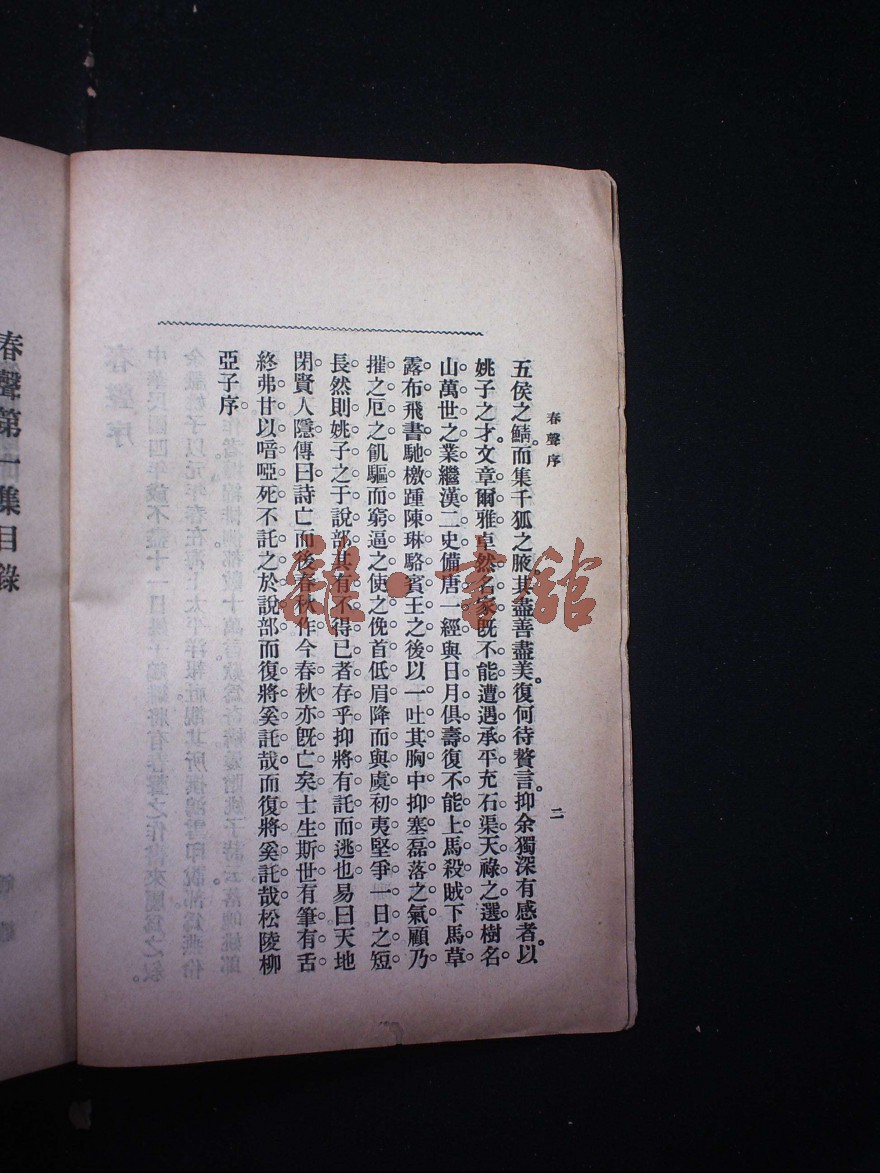 春聲序
二
五侯之鯖。而集千狐之腋。其盡善盡美。復何待贅言。抑余獨深有感者。以
姚子之才。文章爾雅。卓然名家。既不能遭遇承平。充石渠天祿之選。樹名
山萬世之業。繼漢二史。備唐一經。與日月俱壽。復不能上馬殺賊。下馬草
露布。飛書馳檄。踵陳琳駱賓王之後。以一吐其胸中抑塞磊落之氣。顧乃
摧之厄之。飢驅而窮逼之。使之俛首低眉。降而與虞初夷堅爭一日之短
長。然則姚子之于說部。其有不得已者存乎。抑將有託而逃也。易曰。天地
閉。賢人隱。傳曰。詩亡而後春秋作。今春秋亦既亡矣。士生斯世。有筆有舌。
終弗甘以喑啞死。不託之於說部。而復將奚託哉。而復將奚託哉。松陵柳
亞子序。
春聲第一集目錄
雜·書館